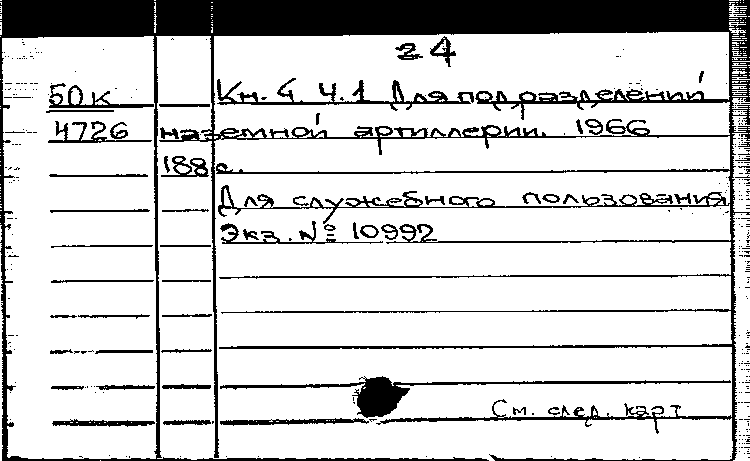 24
50к Кн. 4. Ч.1 Для подразделений
4726 наземной артиллерии. 1966
188 с.
Для служебного пользования
Экз. № 10992
См. след. карт